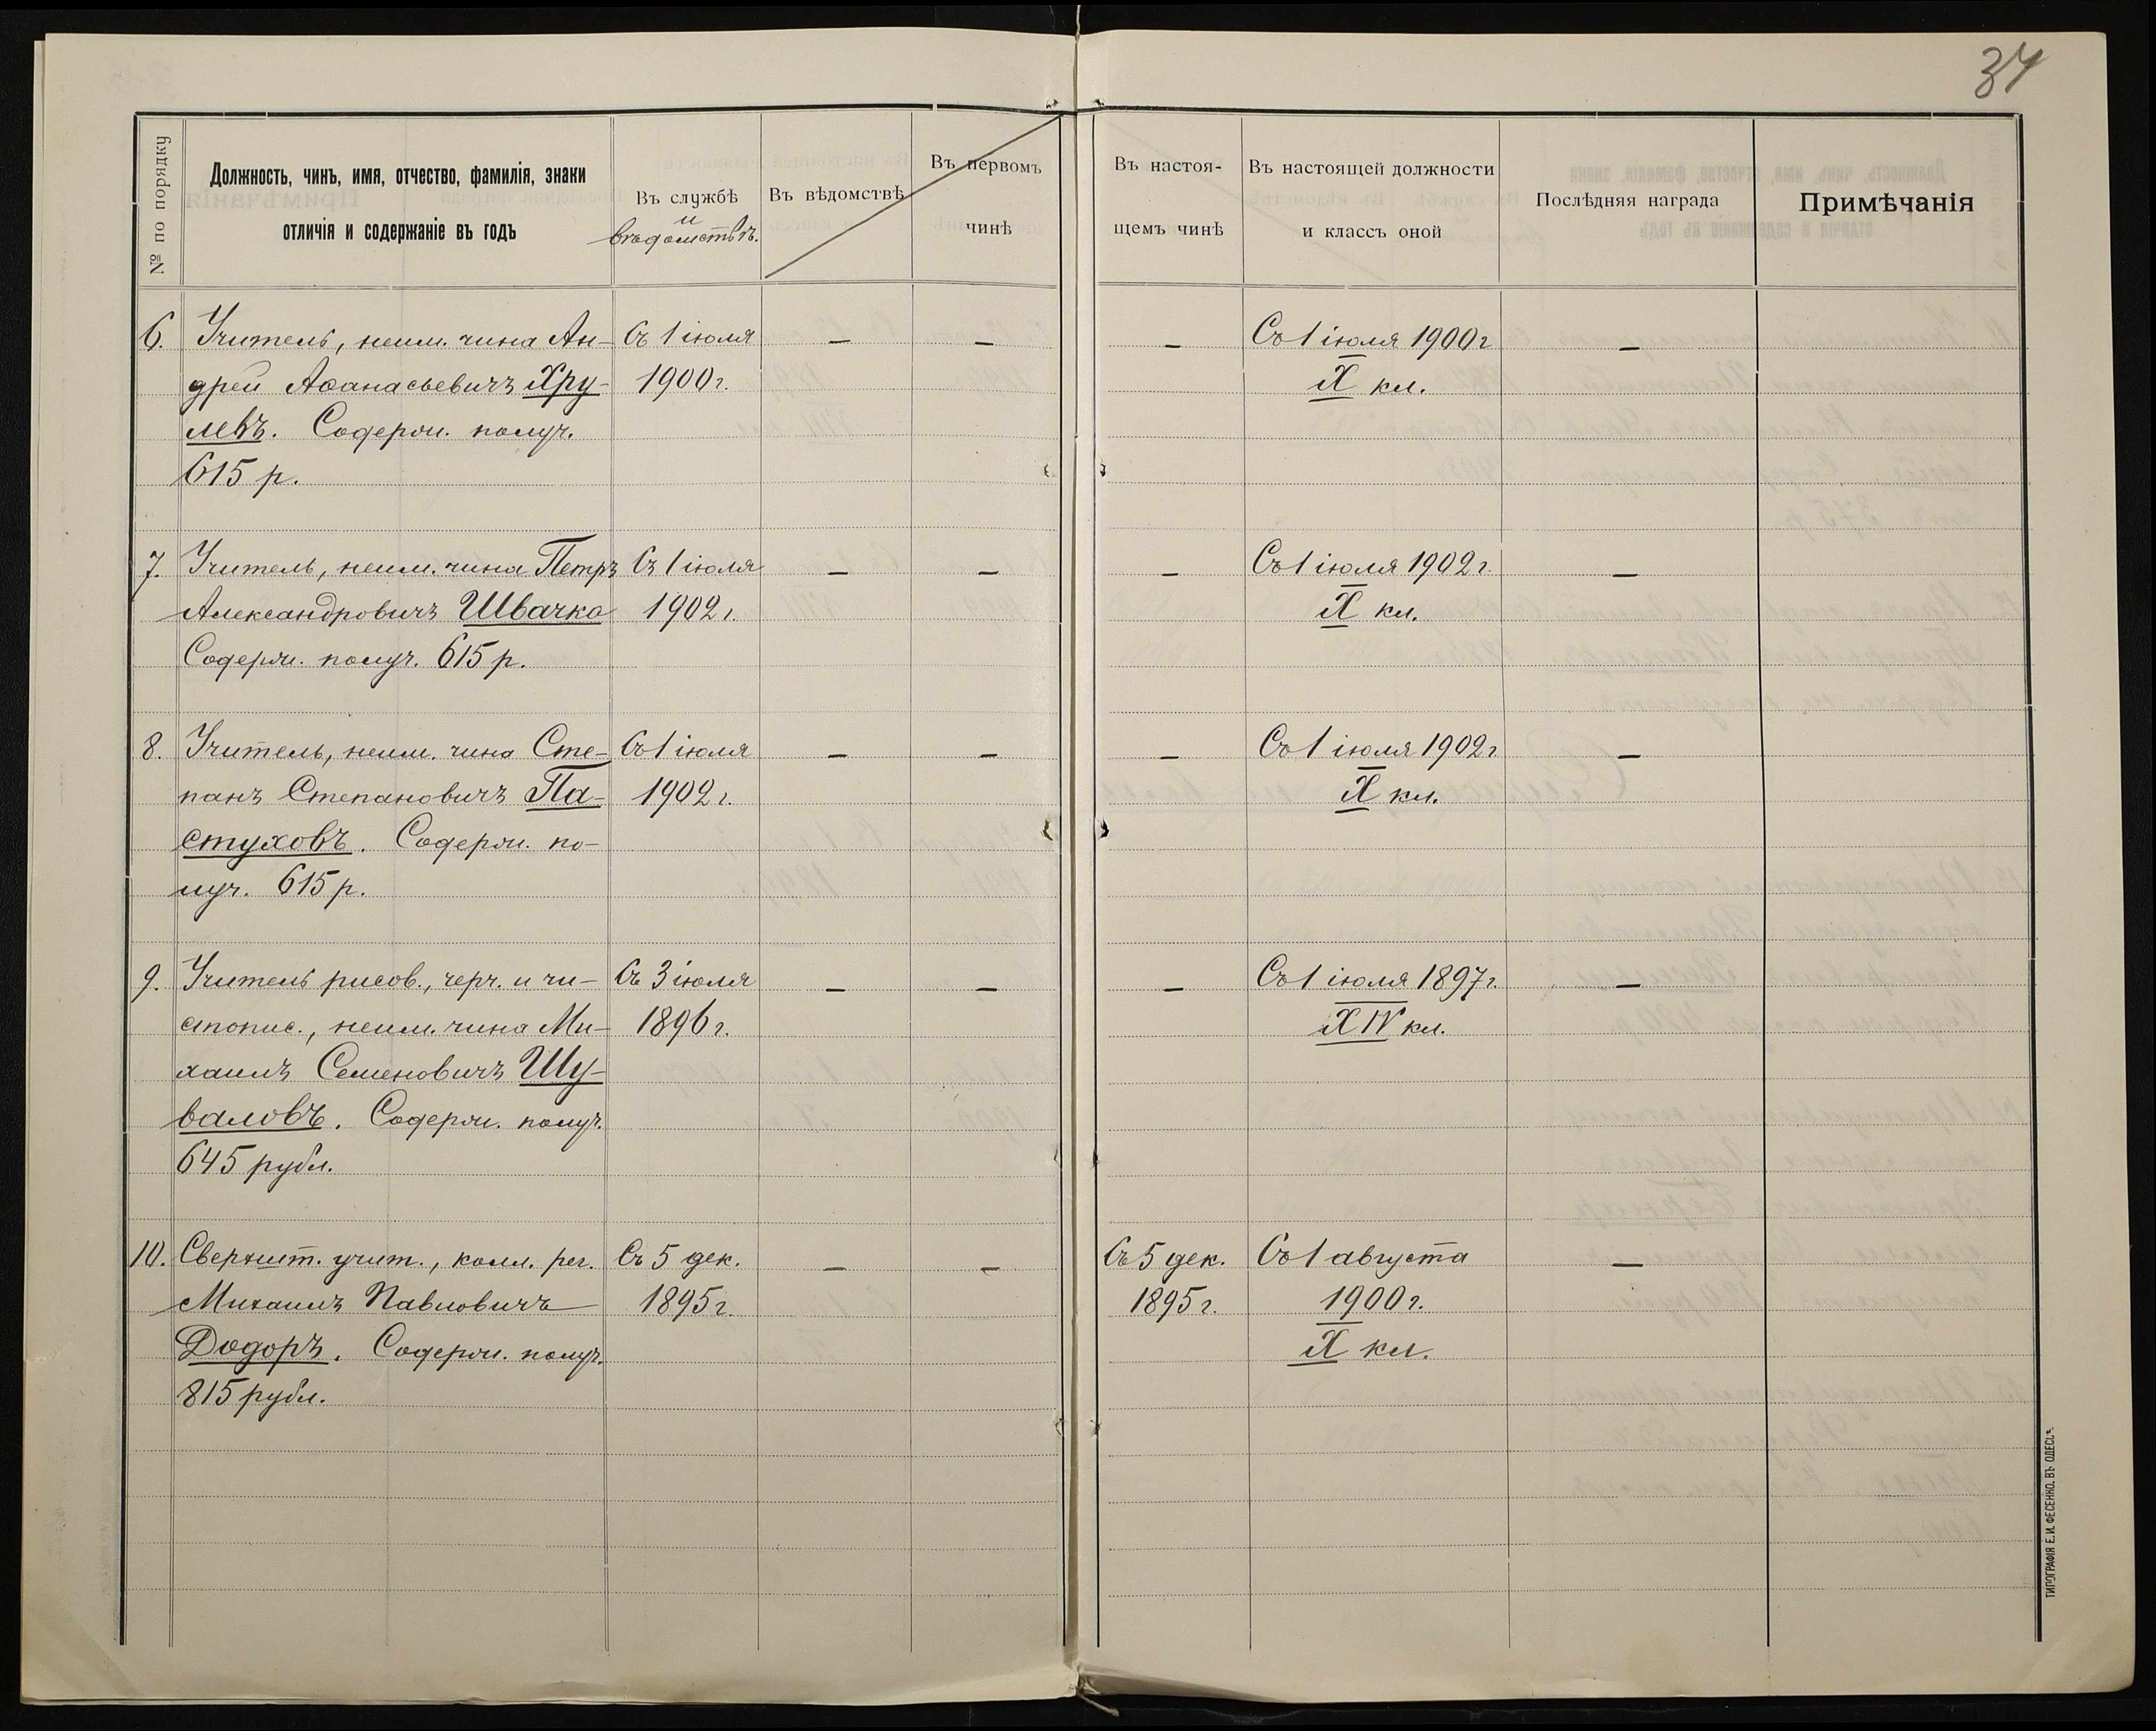 34
№ по порядку
Должность, чинъ, имя, отчество, фамилія, знаки
отличія и содержаніе въ годъ
Въ службѣ
и
вѣдомствѣ.
Въ вѣдомствѣ
Въ первомъ
чинѣ
Въ настоя-
щемъ чинѣ
Въ настоящей должности
и классъ оной
Послѣдняя награда
Примѣчанія
6. Учитель, неим. чина Ан- Съ 1 іюля — — — Съ 1 іюля 1900 г —
дрей Аѳанасьевичъ Хру- 1900 г. X кл.
левъ. Содерж. получ.
615 р.
7. Учитель, неим. чина Петръ Съ 1 іюля — — — Съ 1 іюля 1902 г. —
Александровичъ Швачко 1902 г. X кл.
Содерж. получ. 615 р.
8. Учитель, неим. чина Сте- Съ 1 іюля — — — Съ 1 іюля 1902 г —
панъ Степановичъ Па- 1902 г. X кл.
стуховъ. Содерж. по-
луч. 615 р.
9. Учитель рисов., черч. и чи- Съ 3 іюля — — — Съ 1 іюля 1897 г. —
стопис., неим. чина Ми- 1896 г. XIV кл.
хаилъ Семеновичъ Шу-
валовъ. Содерж. получ.
645 рубл.
10. Сверхшт. учит., колл. рег. Съ 5 дек. — — Съ 5 дек. Съ 1 августа —
Михаилъ Павловичъ 1895 г. 1895 г. 1900 г.
Додоръ. Содерж. получ. X кл.
815 рубл.
ТИПОГРАФІЯ Е. И. ФЕСЕНКО, ВЪ ОДЕССѢ.